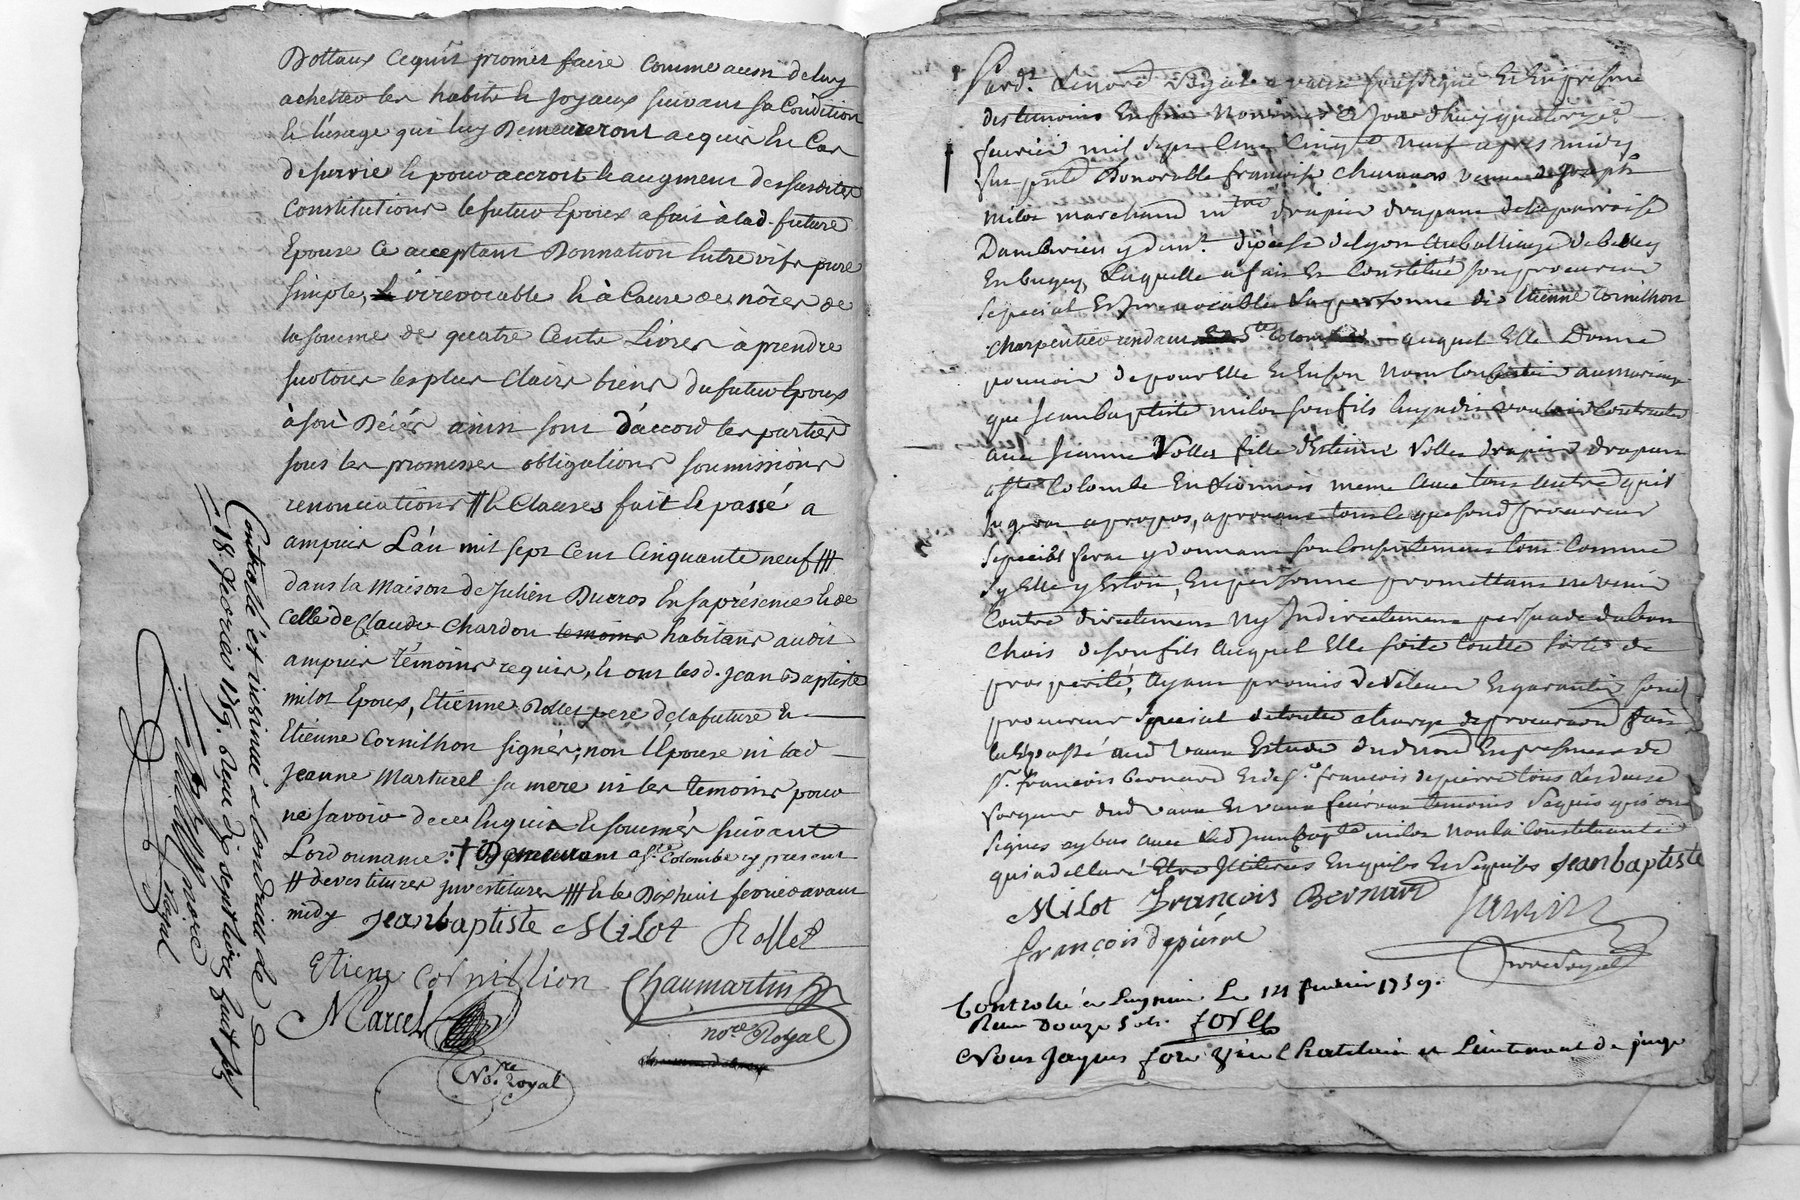 Dottaux cequ'il promet faire comme aussi deluy
achetter les habits & joyaux suivant sa Condition
& l'usage qui luy Demeureront acquis En Cas
de survie & pour accroit & augment des susdites
Constitutions le futur Epoux a fait à lad. future
Epouse ce acceptant Donnation Entre vifs pure
simple, & irrevocable & à Cause de nôces de
la somme de quatre Cents Livres à prendre
sur tous les plus Clairs biens du futur Epoux
à son Décés ainsi sont d'accord les parties
sous les promesses obligations soumissions
renonciations # & Clauses fait & passé a
ampuis L'an mil sept Cent Cinquante neuf ##
dans la Maison de Julien Ducros En sa présence & de
Celle de Claude Chardon temoins habitans audit
ampuis Témoins requis, & ont lesd. Jean Baptiste
milot Epoux, Etienne Rollet pere de la future &
Etienne Cornilhon signés, non l'Epouse ni lad
Jeanne Marturel sa mere ni les temoins pour
ne savoir de ce Enquis & sommés suivant
Lordonnance: † Demeurant a Ste Colombe cy present
# devestitures investitures ## & le Dix huit fevrier avant
midy Jean baptiste Milot Rollet
Etiene Cornillion Chaumartin
Marcel nore Royal
No.re Royal
Controllé et insinué a Condrieu le
18. fevrier 1759. Reçu dix sept livres huit s
Pard.t Lenore Royal a vaux soussigné Et En presence
des temoins En fin Nommés Ce Jourd'huy quatorze
feuvrier mil sept Cent Cinqte Neuf apres midy
fut pnte Honorable francoise veuve de Joseph
milot marchand mtre drapier drapant de la parroisse
Dambérieu y demt. diocese de Lyon au balliage de belley
En bugey, Laquelle a fait Et Constitué son procureur
Special Et Irrevocable La personne de Etienne Cornilhon
charpentier Ste Colombe auquel Elle Donne
pouvoir de pour Elle Et En son Nom Consentir au mariage
que Jean baptiste milot son fils Contracter
avec Jeanne Rollet fille d'Etienne Rollet drapier drapant
a Ste Colombe En Lionnois meme avec tous autre qu'il
Jugera apropos, aprouvant tout Ce que sond procureur
Special fera y donnant son Consentement tout Comme
Sy Elle y Estoit En personne promettant ne venir
Contre directement Ny Indirectement persuade du bon
Chois de son fils auquel Elle soite toutte sorte de
prosperité, Ayant promis De relever Et garantir sond
procureur Special de toutte charge de procuration fait
Et passé aud vaux Estude dud Nore En presence de
Sr. francois bernard Et de Sr. francois depierre tous deux
dud vaux Et vaux temoins Requis qui ont
Signés cy bas avec led Jean bapte milot Non la Constituante
qui a declaré Etre Illiteree Enquises Et Requises Jean baptiste
Milot François Bernard
françois depierre
Controllé a Lagnieu Le 14 feuvrier 1759.
Reçu Douze sols. forel
Nous Jaques Chatelain et Lieutenant de juge